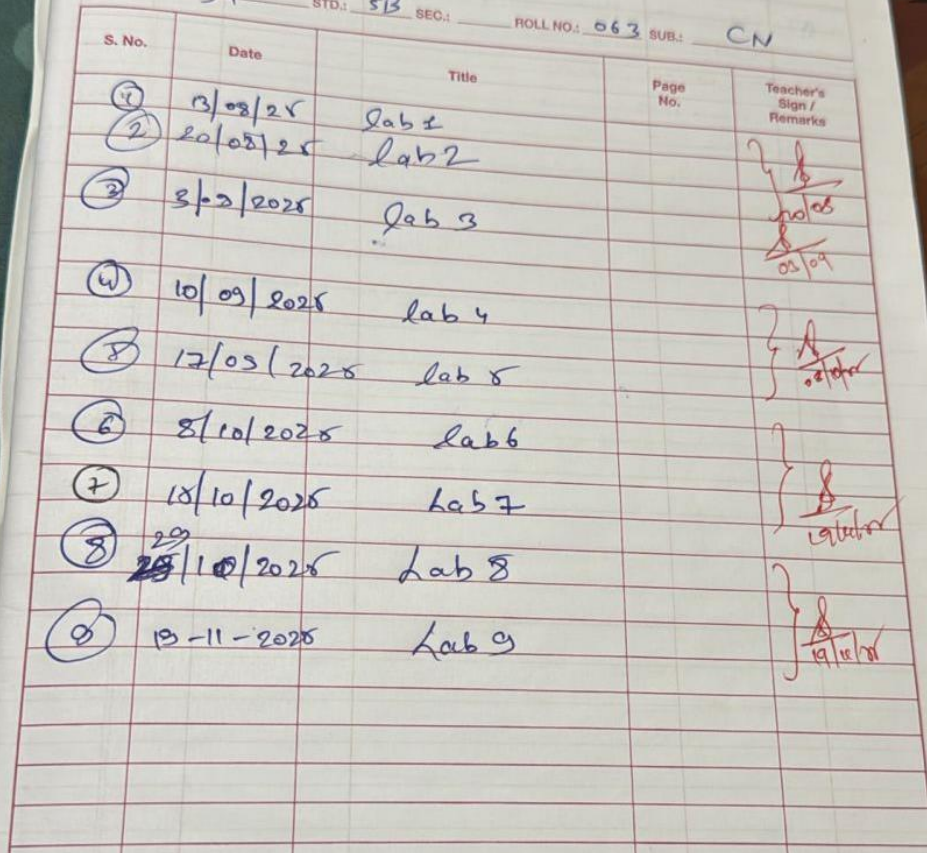 STD.: 5B SEC.: ROLL NO.: 063 SUB.: CN
S. No. Date Title Page No. Teacher's Sign / Remarks
1 13/08/25 lab 1
2 20/08/25 lab 2
20/08
3 3/09/2025 lab 3
03/09
4 10/09/2025 lab 4
5 17/09/2025 lab 5
6 8/10/2025 lab 6
7 15/10/2025 Lab 7
8 29/10/2025 Lab 8
9 19-11-2025 Lab 9